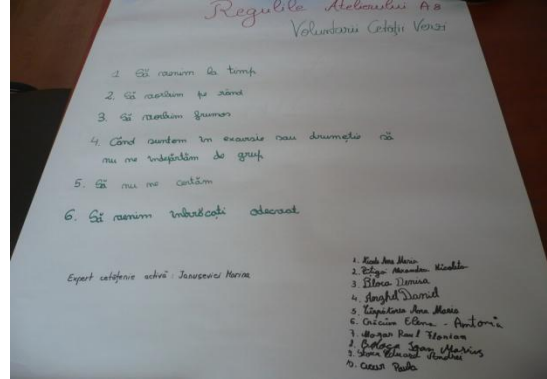 Regulile Atelierului A8
Voluntarii Cetății Verzi
1. Să venim la timp
2. Să vorbim pe rând
3. Să vorbim frumos
4. Când suntem în excursie sau drumeție să
nu ne îndepărtăm de grup
5. Să nu ne certăm
6. Să venim îmbrăcați adecvat
Expert cetățenie activă: Janusevici Marina
1. Ana Maria
2. Nicoleta
3. Bloca Denisa
4. Anghel Daniel
5. Ana Maria
6. Crăciun Elena - Antonia
7. Raul Florian
8. Marius
9. Andrei
10. Paula